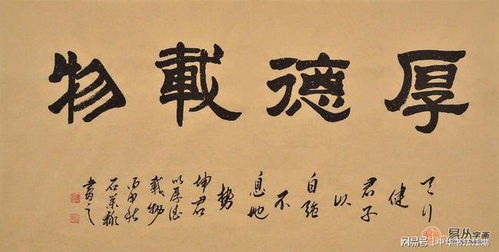 厚德載物
天行
健
君子
以
自強
不
息地
勢
坤君
以厚德
載物
丙申秋
石荣禄
書之
易从字画
网易号 | 中华书法